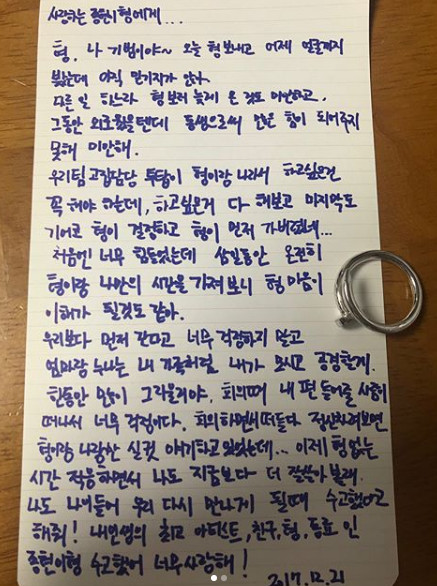 사랑하는 종현이형에게...
형, 나 기범이야~ 오늘 형보내고 어제 얼굴까지
봤는데 아직 믿기지가 않아.
다른 일 하느라 형 보러 늦게 온 것도 미안하고,
그동안 외로웠을텐데 동생으로써 많은 힘이 되어주지
못해 미안해.
우리팀 고집담당 투탑이 형이랑 나라서 하고싶은건
꼭 해야 했는데, 하고싶은거 다 해보고 마지막도
기어코 형이 결정하고 형이 먼저 가버렸네...
처음엔 너무 힘들었는데 삼일동안 온전히
형이랑 나만의 시간을 가져보니 형 마음이
이해가 될것도 같아.
우리보다 먼저 간다고 너무 걱정하지 말고
엄마랑 누나는 내 가족처럼 내가 모시고 공경할게.
한동안 많이 그리울거야. 회의때 내 편 들어줄 사람이
떠나서 너무 걱정이다. 회의하면서 떠들다 정신차려보면
형이랑 나랑만 실컷 얘기하고 있었는데... 이제 형 없는
시간 적응하면서 나도 지금보다 더 잘살아 볼래.
나도 나이들어 우리 다시 만나게 될때 수고했다고
해줘! 내 인생의 최고 아티스트, 친구, 형, 동료 인
종현이형 수고했어 너무 사랑해!
2017.12.21